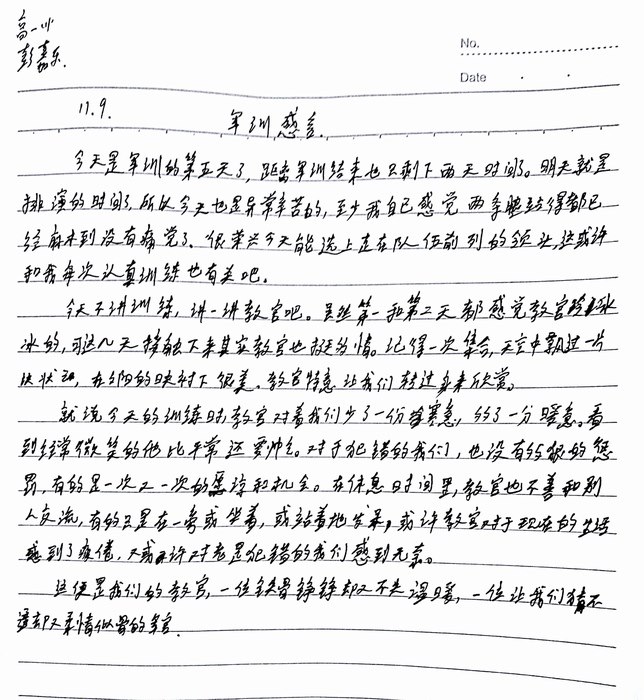 高一
彭嘉乐.
No.
Date
11.9.
军训感言.
今天是军训的第五天了,距离军训结束也只剩下两天时间了。明天就是
排演的时间了,所以今天也是异常辛苦的,至少我自己感觉两条腿站得都已
经麻木到没有痛觉了。很荣兴今天能选上走在队伍前列的领头,这或许
和我每次认真训练也有关吧。
今天不讲训练,讲一讲教官吧。虽然第一和第二天都感觉教官冷冰
冰的,可这几天接触下来其实教官也挺热情。记得一次集合,天空中飘过一片
状云,在夕阳的映衬下很美。教官特意让我们转过身来欣赏。
就说今天的训练时,教官对着我们少了一份寒意,多了一分暖意。看
到经常微笑的他比平常还要帅气。对于犯错的我们,也没有的惩
罚,有的是一次又一次的和机会。在休息时间里,教官也不善和别
人交流,有的只是在一旁或坐着,或站着地发呆,或许教官对于现在的生活
感到了疲倦,又或许对老是犯错的我们感到无奈。
这便是我们的教官,一位铁骨铮铮却又不失温暖,一位让我们猜不
透却又柔情似骨的军官.